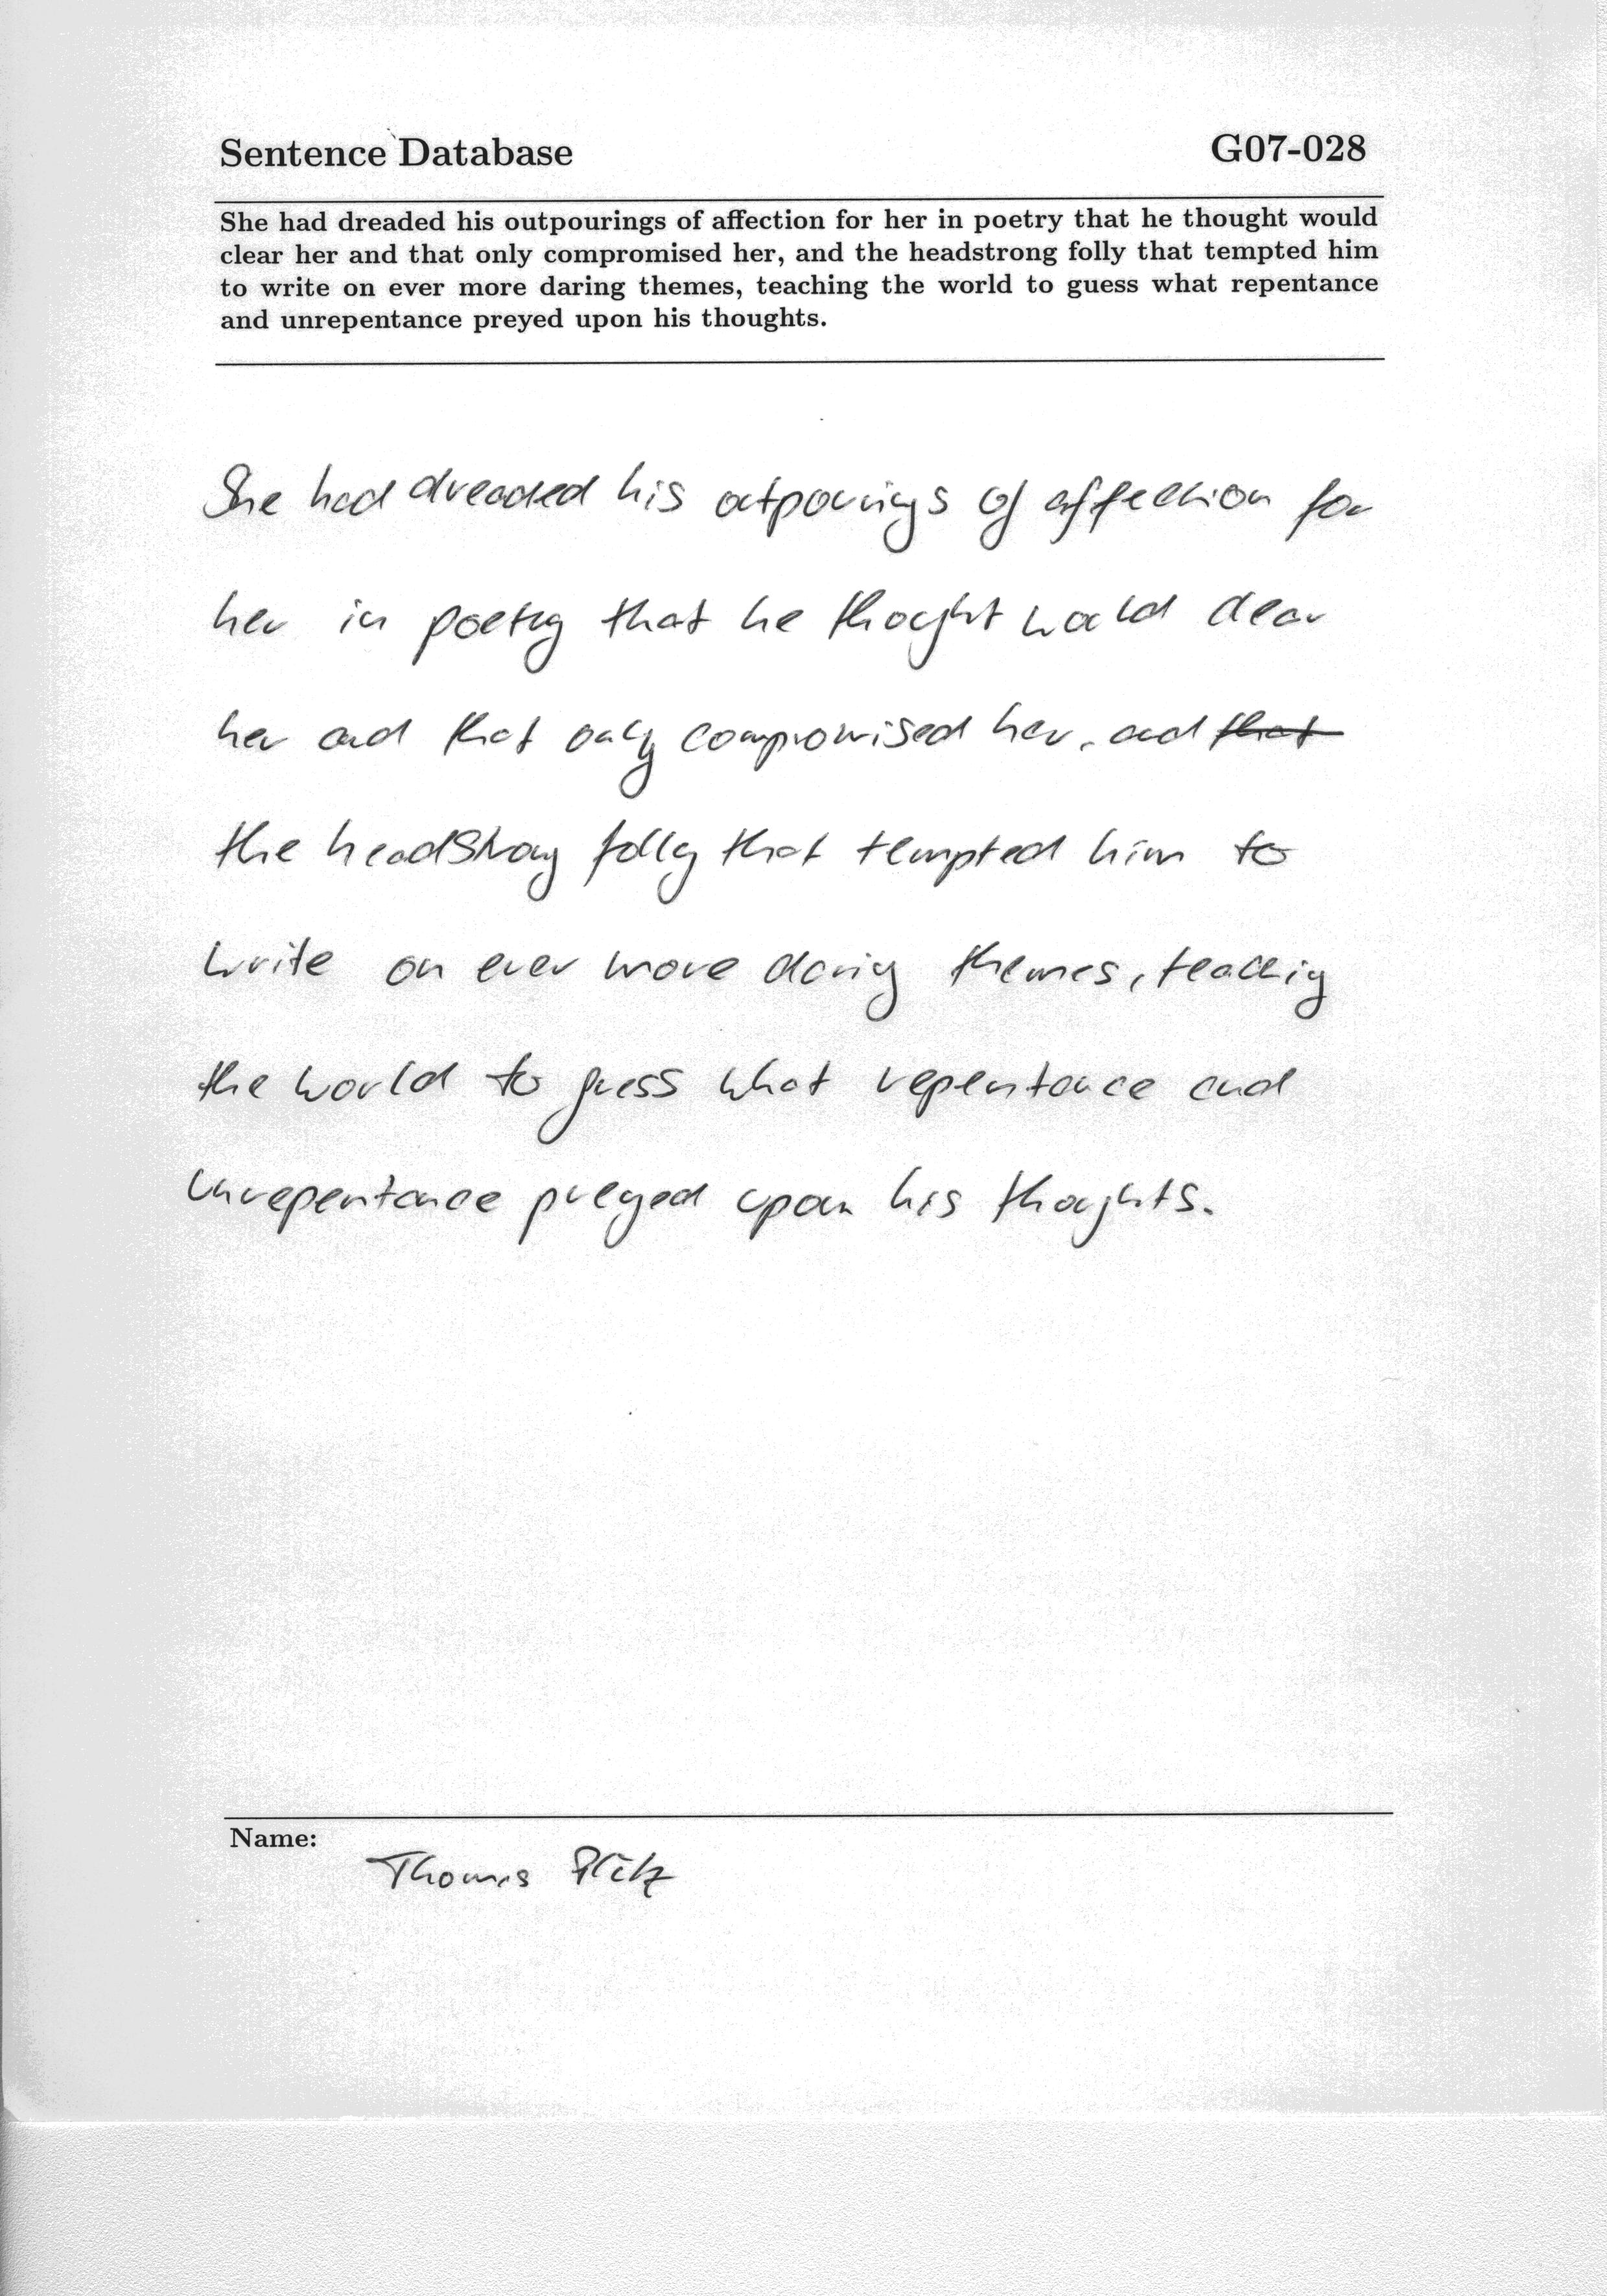 Sentence Database G07-028
She had dreaded his outpourings of affection for her in poetry that he thought would
clear her and that only compromised her, and the headstrong folly that tempted him
to write on ever more daring themes, teaching the world to guess what repentance
and unrepentance preyed upon his thoughts.
She had dreaded his outpourings of affection for
her in poetry that he thought would clear
her and that only compromised her, and that
the headstrong folly that tempted him to
write on ever more daring themes, teaching
the world to guess what repentance and
unrepentance preyed upon his thoughts.
Name:
Thomas